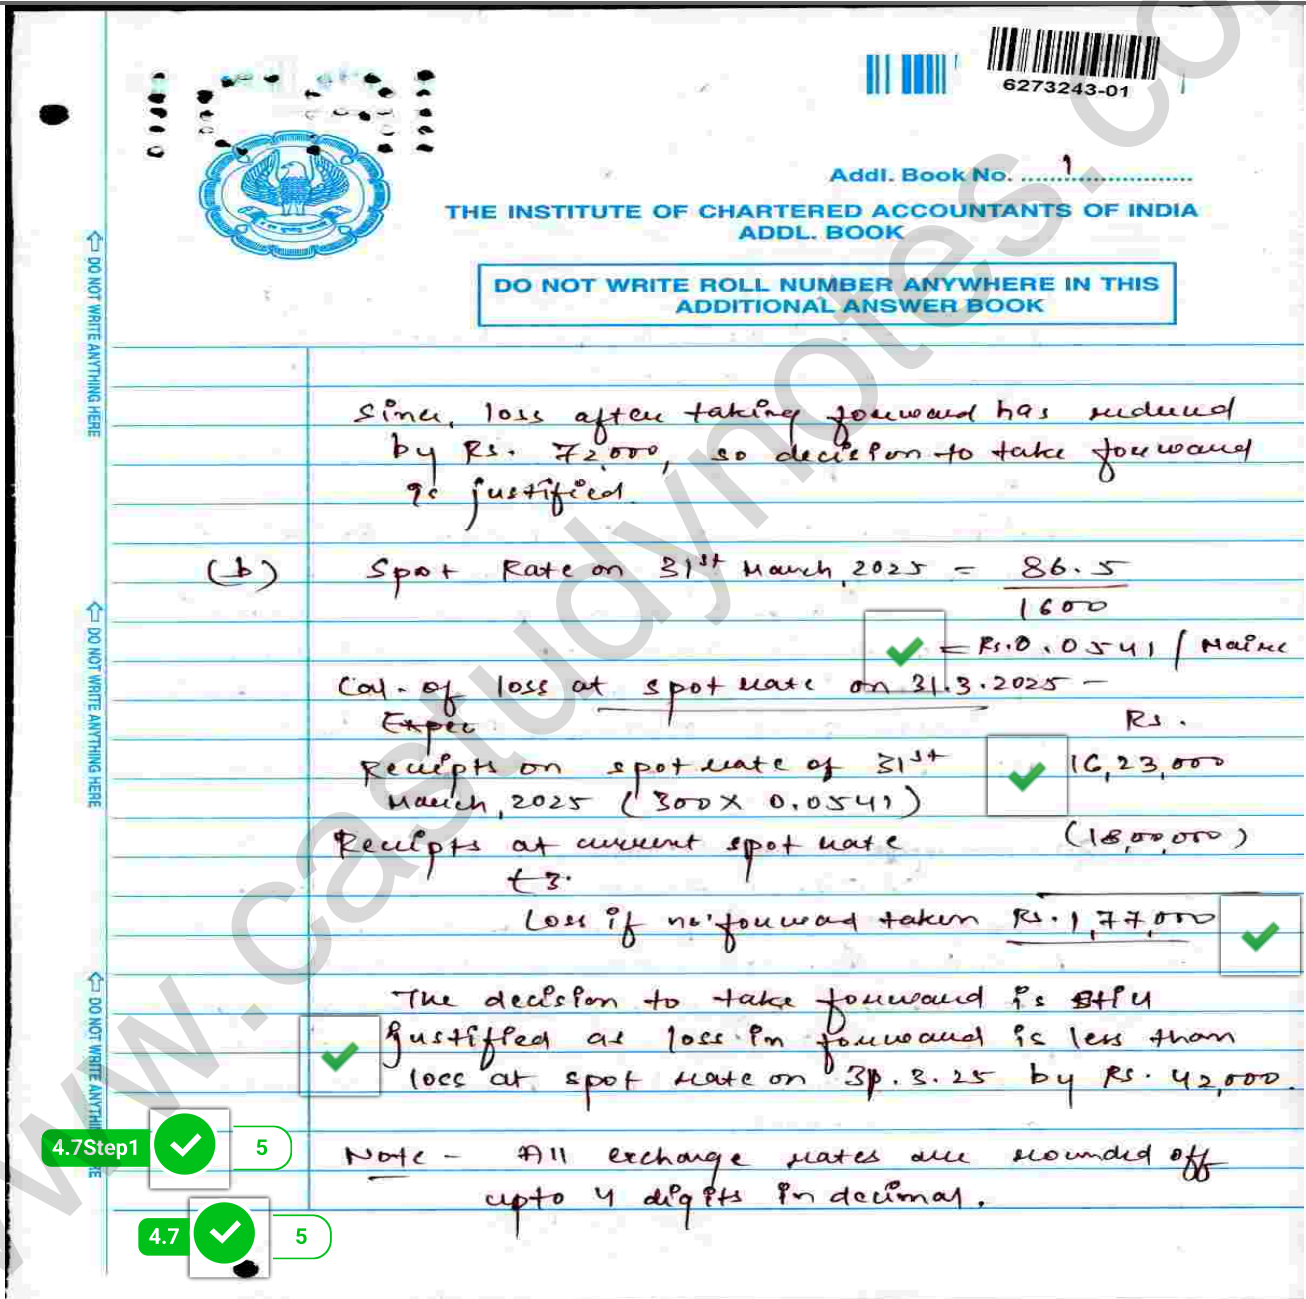 6273243-01
Addl. Book No. ...... 1 ......
THE INSTITUTE OF CHARTERED ACCOUNTANTS OF INDIA
ADDL. BOOK
DO NOT WRITE ROLL NUMBER ANYWHERE IN THIS
ADDITIONAL ANSWER BOOK
DO NOT WRITE ANYTHING HERE
DO NOT WRITE ANYTHING HERE
DO NOT WRITE ANYTHING HERE
www.castudynotes.co
Since, loss after taking forward has reduced
by Rs. 72,000, so decision to take forward
is justified.
(b) Spot Rate on 31st March, 2025 = 86.5
1600
= Rs. 0.0541 / Naira
Cal. of loss at spot rate on 31.3.2025 -
Expec Rs.
Receipts on spot rate of 31st 16,23,000
March, 2025 (300 X 0.0541)
Receipts at current spot rate (18,00,000)
t3.
Loss if no forward taken Rs. 1,77,000
The decision to take forward is still
justified as loss in forward is less than
loss at spot rate on 31.3.25 by Rs. 42,000.
4.7Step1 5
Note - All exchange rates are rounded off
upto 4 digits in decimal.
4.7 5